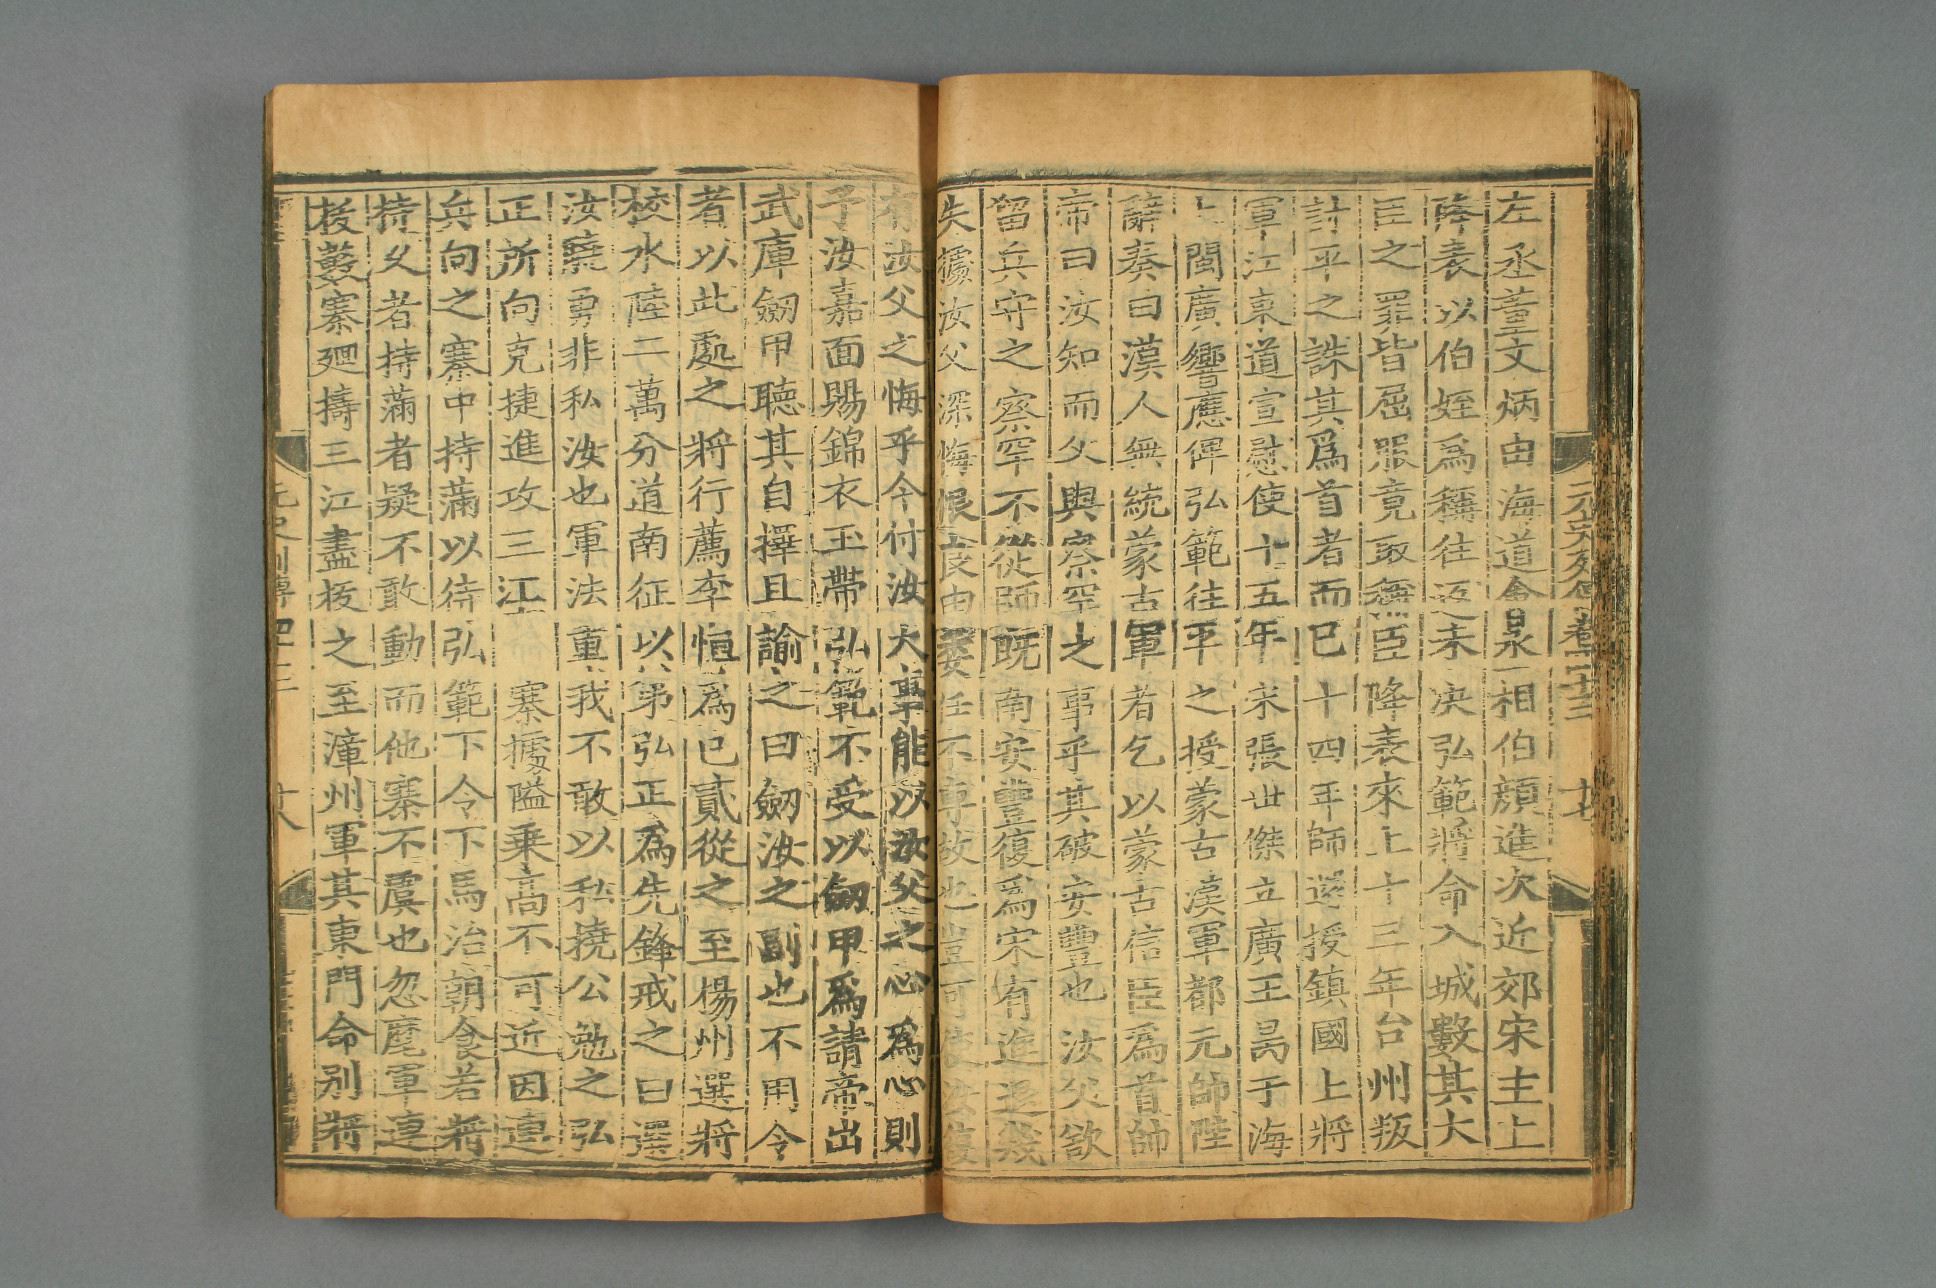 左丞董文炳由海道會丞相伯顔進次近郊宋主上
降表以伯姪爲稱往返未決弘範將命入城數其大
臣之罪皆屈服竟取稱臣降表來上十三年台州叛
討平之誅其爲首者而已十四年師還授鎮國上將
軍江東道宣慰使十五年宋張世傑立廣王昺于海
上閩廣響應俾弘範往平之授蒙古漢軍都元帥陛
辭奏曰漢人無統蒙古軍者乞以蒙古信臣爲首帥
帝曰汝知而父與察罕之事乎其破安豐也汝父欲
留兵守之察罕不從師既南安豐復爲宋有進退幾
失據汝父深悔恨良由委任不專故也豈可使汝復
有汝父之悔乎今付汝大事能以汝父之心爲心則
予汝嘉面賜錦衣玉帶弘範不受以劒甲爲請帝出
武庫劒甲聽其自擇且諭之曰劒汝之副也不用令
者以此處之將行薦李恒爲已貳從之至楊州選將
校水陸二萬分道南征以弟弘正爲先鋒戒之曰選
汝驍勇非私汝也軍法重我不敢以私撓公勉之弘
正所向克捷進攻三江寨據隘乗高不可近因連
兵向之寨中持滿以待弘範下令下馬治朝食若將
持久者持滿者疑不敢動而他寨不虞也忽麾軍連
拔數寨廻擣三江盡拔之至漳州軍其東門命別將
元史列傳卷四十三
十七
元史列傳四十三
十八